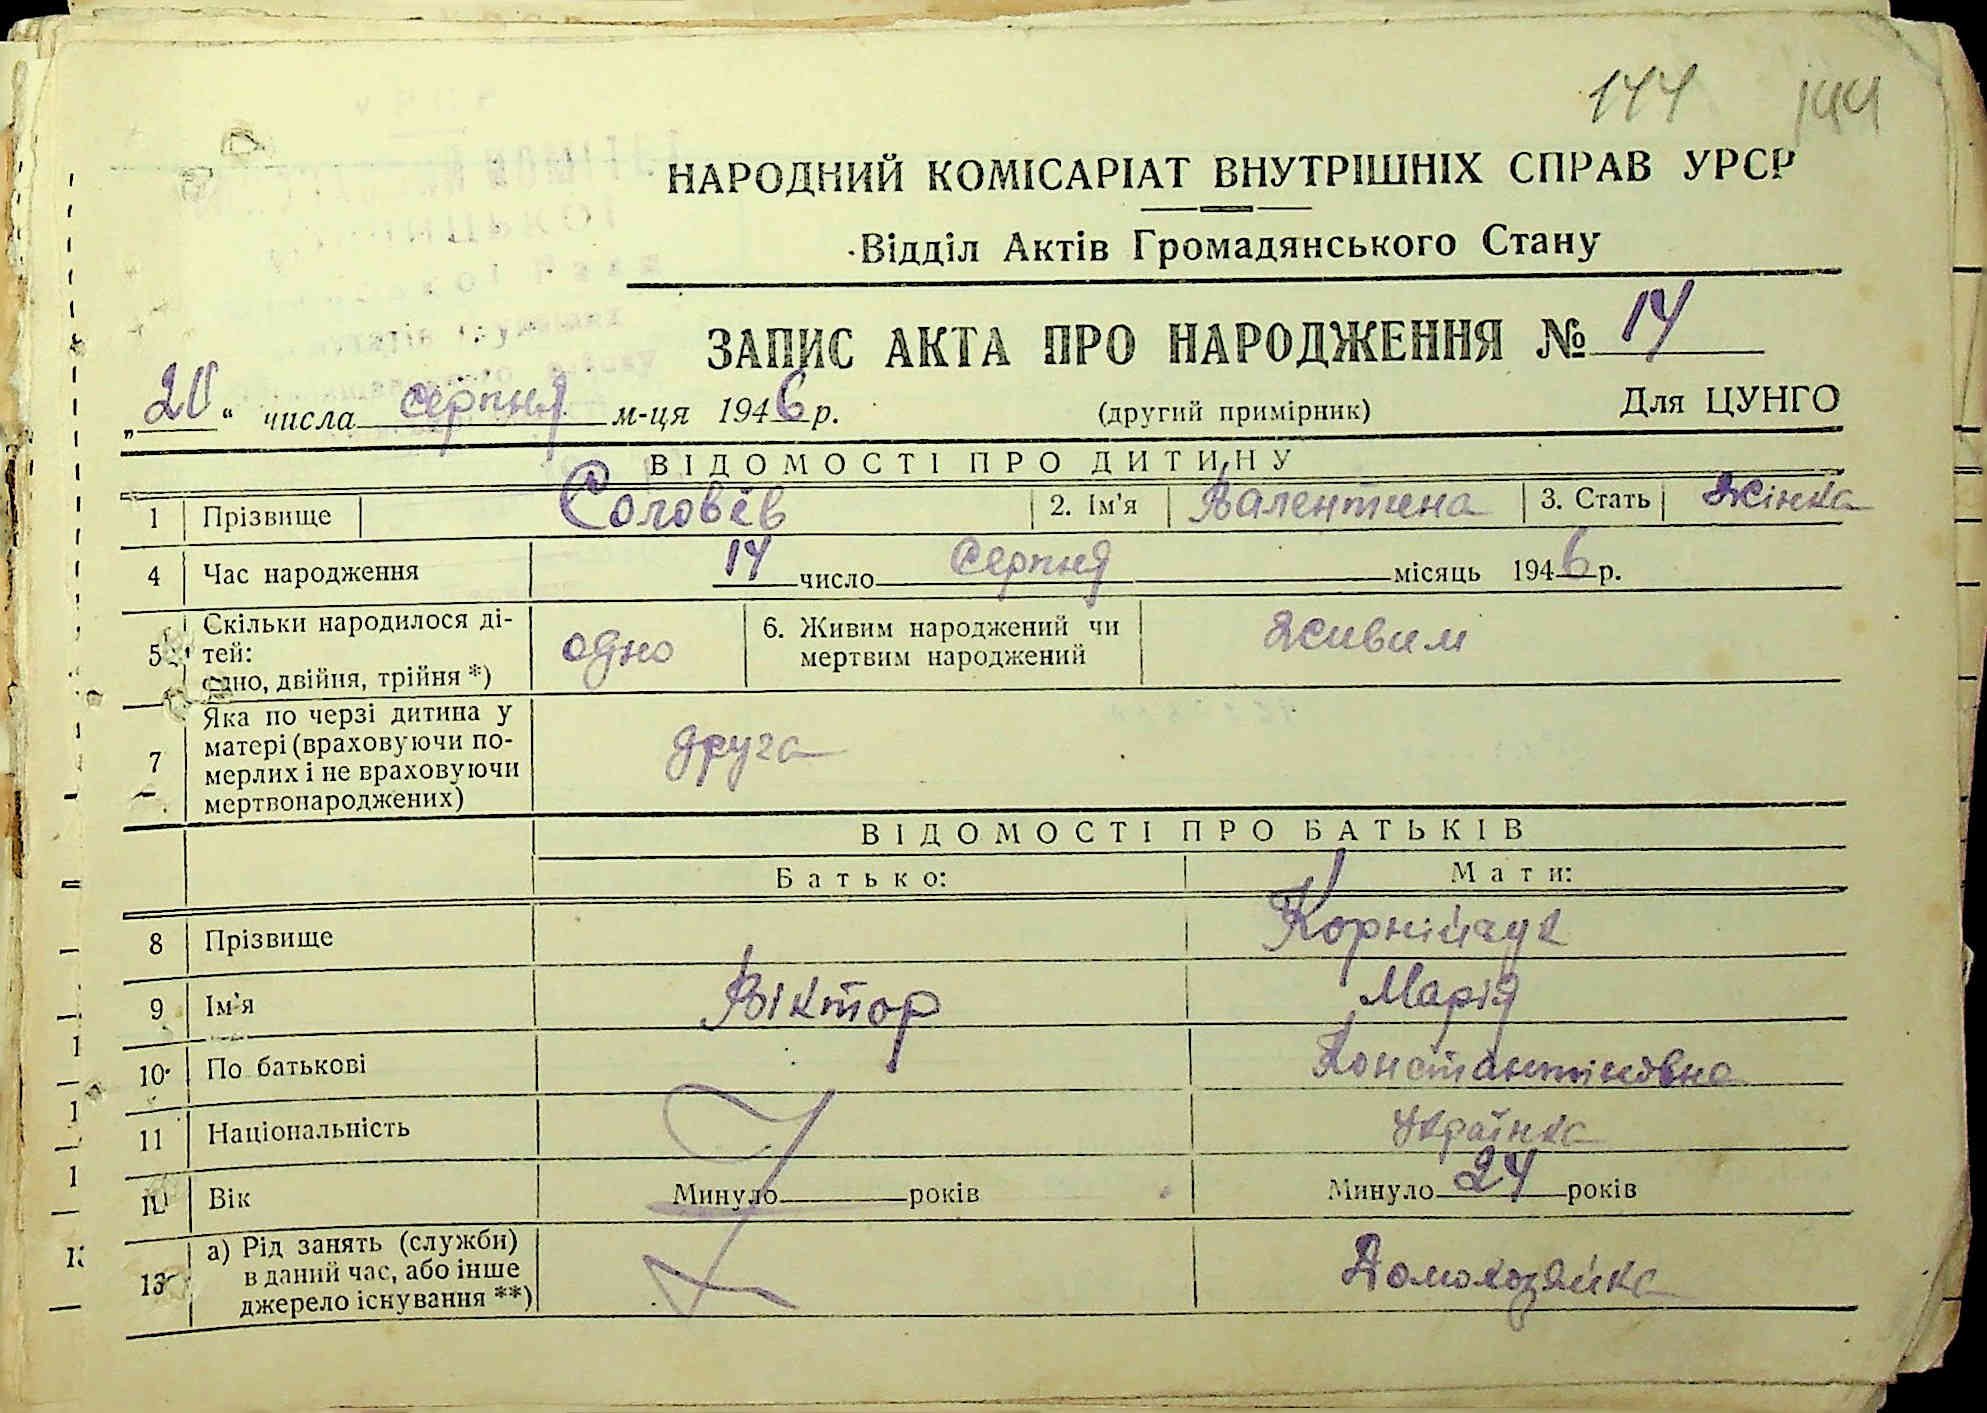 144 144
НАРОДНИЙ КОМІСАРІАТ ВНУТРІШНІХ СПРАВ УРСР
Відділ Актів Громадянського Стану
ЗАПИС АКТА ПРО НАРОДЖЕННЯ № 14
„20“ числа серпня м-ця 1946 р. (другий примірник) Для ЦУНГО
ВІДОМОСТІ ПРО ДИТИНУ
1 Прізвище Соловёв 2. Ім'я Валентина 3. Стать жінка
4 Час народження 14 число серпня місяць 1946 р.
5 Скільки народилося ді-
тей:
одно, двійня, трійня *) одно 6. Живим народжений чи
мертвим народжений живим
7 Яка по черзі дитина у
матері (враховуючи по-
мерлих і не враховуючи
мертвонароджених) друга
ВІДОМОСТІ ПРО БАТЬКІВ
Батько: Мати:
8 Прізвище Корнійчук
9 Ім'я Віктор Марія
10 По батькові Константіновна
11 Національність українка
12 Вік Минуло років Минуло 24 років
13 а) Рід занять (служби)
в даний час, або інше
джерело існування **) Домохозяйка